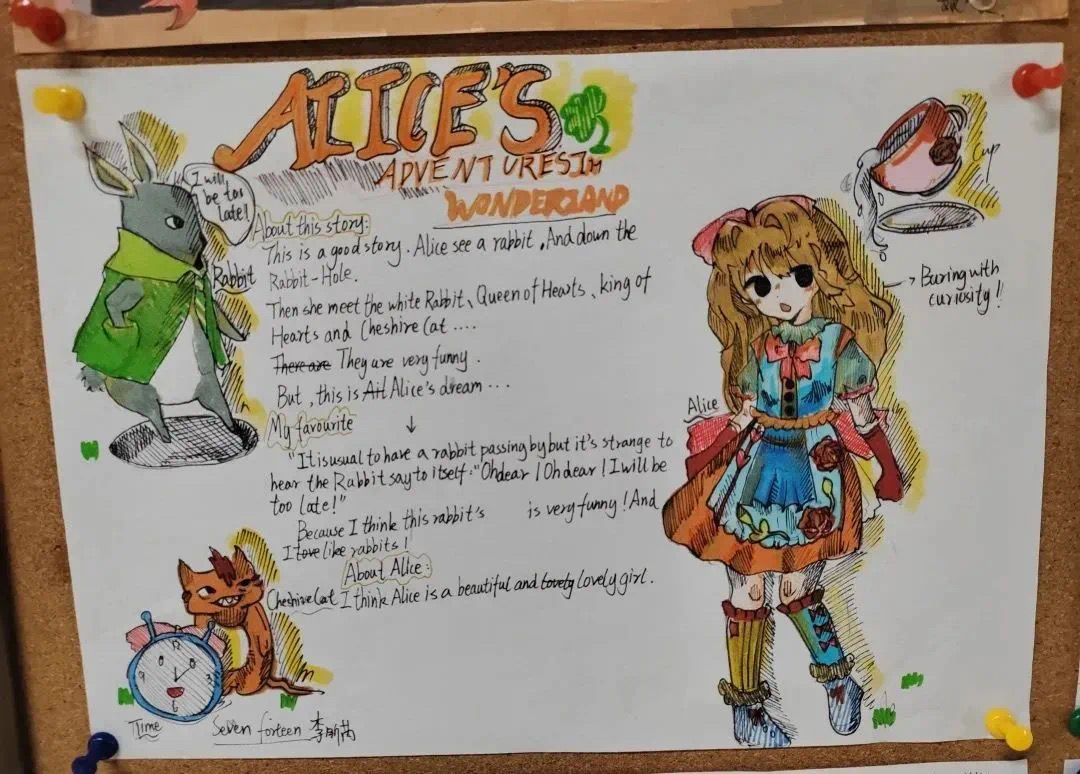 ALICE'S
ADVENTURESIN
WONDERLAND
I will
be too
late!
Rabbit
Cup
About this story:
This is a good story. Alice see a rabbit, And down the
Rabbit-Hole.
Then she meet the white Rabbit、Queen of Hearts、king of
Hearts and Cheshire Cat ....
There are They are very funny.
But, this is All Alice's dream ...
My favourite
↓
"It is usual to have a rabbit passing by but it's strange to
hear the Rabbit say to itself: "Oh dear! Oh dear! I will be
too late!"
Because I think this rabbit's is very funny! And
I love like rabbits!
About Alice:
I think Alice is a beautiful and lovely lovely girl.
Cheshire Cat
Alice
→ Buring with
curiosity!!
12
3
9
Time
Seven forteen 李